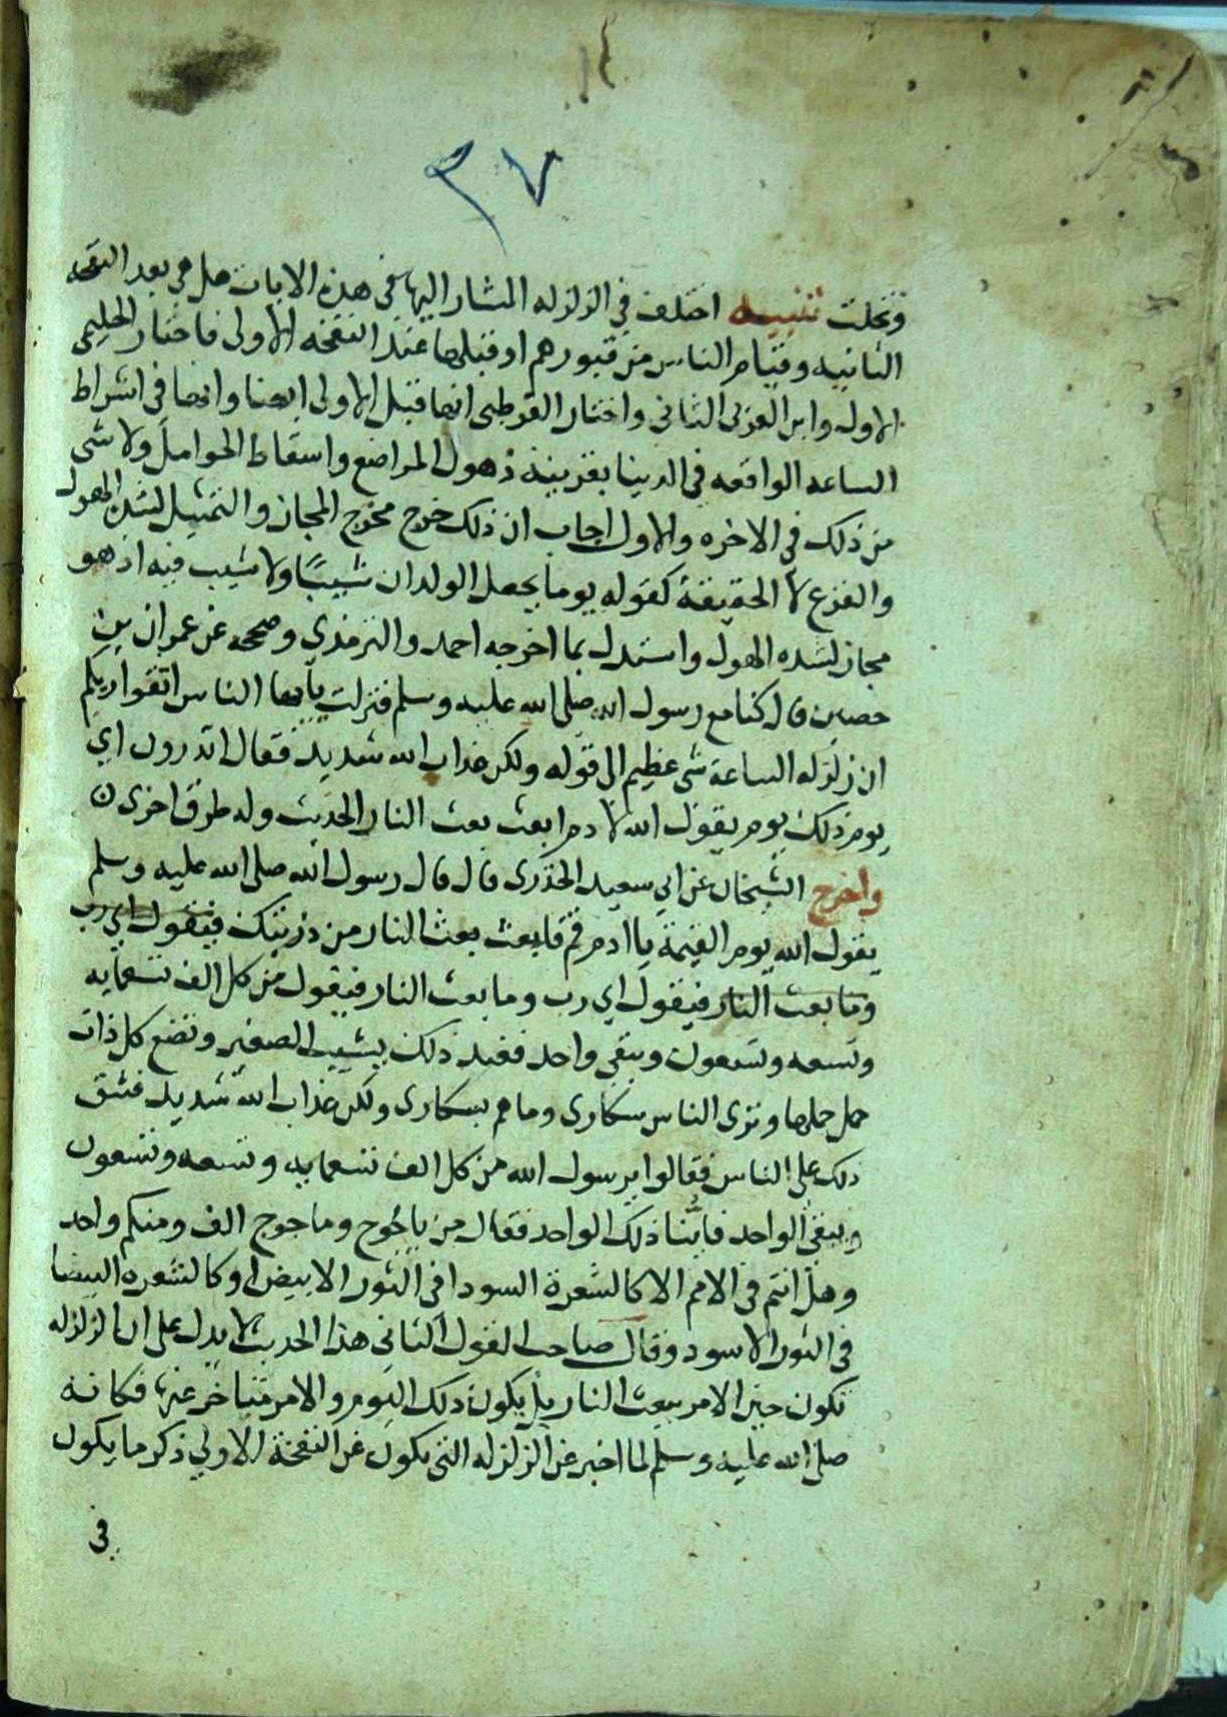 ٣٧
وتخلت تنبيه اختلف في الزلزله المشار اليها في هذه الايات هل هي بعد النفخه
الثانيه وقيام الناس من قبورهم او قبلها عند النفخه الاولى فاختار الحليمى
الاول وابن العربى الثاني واختار القرطبى انها قبل الاولى ايضا وانها فى اشراط
الساعه الواقعه في الدنيا بقرينة ذهول المراضع واسقاط الحوامل ولا شى
من ذلك في الاخره والاول اجاب ان ذلك خرج مخرج المجاز والتمثيل لشدة الهول
والفزع لا الحقيقة كقوله يوما يجعل الولدان شيبًا ولا شيب فيه اذ هو
مجاز لشده الهول واستدل بما اخرجه احمد والترمذي وصححه عن عمران بن
حصين قال كنا مع رسول الله صلى الله عليه وسلم فنزلت يايها الناس اتقوا ربكم
ان زلزله الساعة شى عظيم الى قوله ولكن عذاب الله شديد فقال اتدرون اي
يوم ذلك يوم يقول الله لادم ابعث بعث النار الحديث وله طرق اخرى ن
واخرج الشيخان عن ابي سعيد الخدرى قال قال رسول الله صلى الله عليه وسلم
يقول الله يوم القيمة يا ادم قم فابعث بعث النار من ذريتك فيقول اي رب
وما بعث النار فيقول اي رب وما بعث النار فيقول من كل الف تسعمايه
وتسعه وتسعون ويبقى واحد فعند ذلك يشيب الصغير وتضع كل ذات
حمل حملها وترى الناس سكارى وما هم بسكارى ولكن عذاب الله شديد فشق
ذلك على الناس فقالوا يرسول الله من كل الف تسعمايه وتسعه وتسعون
ويبقى الواحد فاينا ذلك الواحد فقال من ياجوج وماجوج الف ومنكم واحد
وهل انتم فى الامم الا كالشعرة السودا في الثور الابيض او كالشعره البيضا
فى الثور الاسود وقال صاحب القول الثانى هذا الحديث لا يدل على ان الزلزله
تكون حين الامر ببعث النار بل يكون ذلك اليوم والامر متاخر عنها فكانه
صلى الله عليه وسلم لما اخبر عن الزلزله التى تكون عن النفخة الاولى ذكر ما يكون
فى